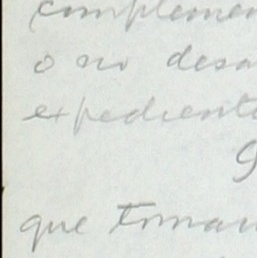 complemen
o no desa
expediente
que toman